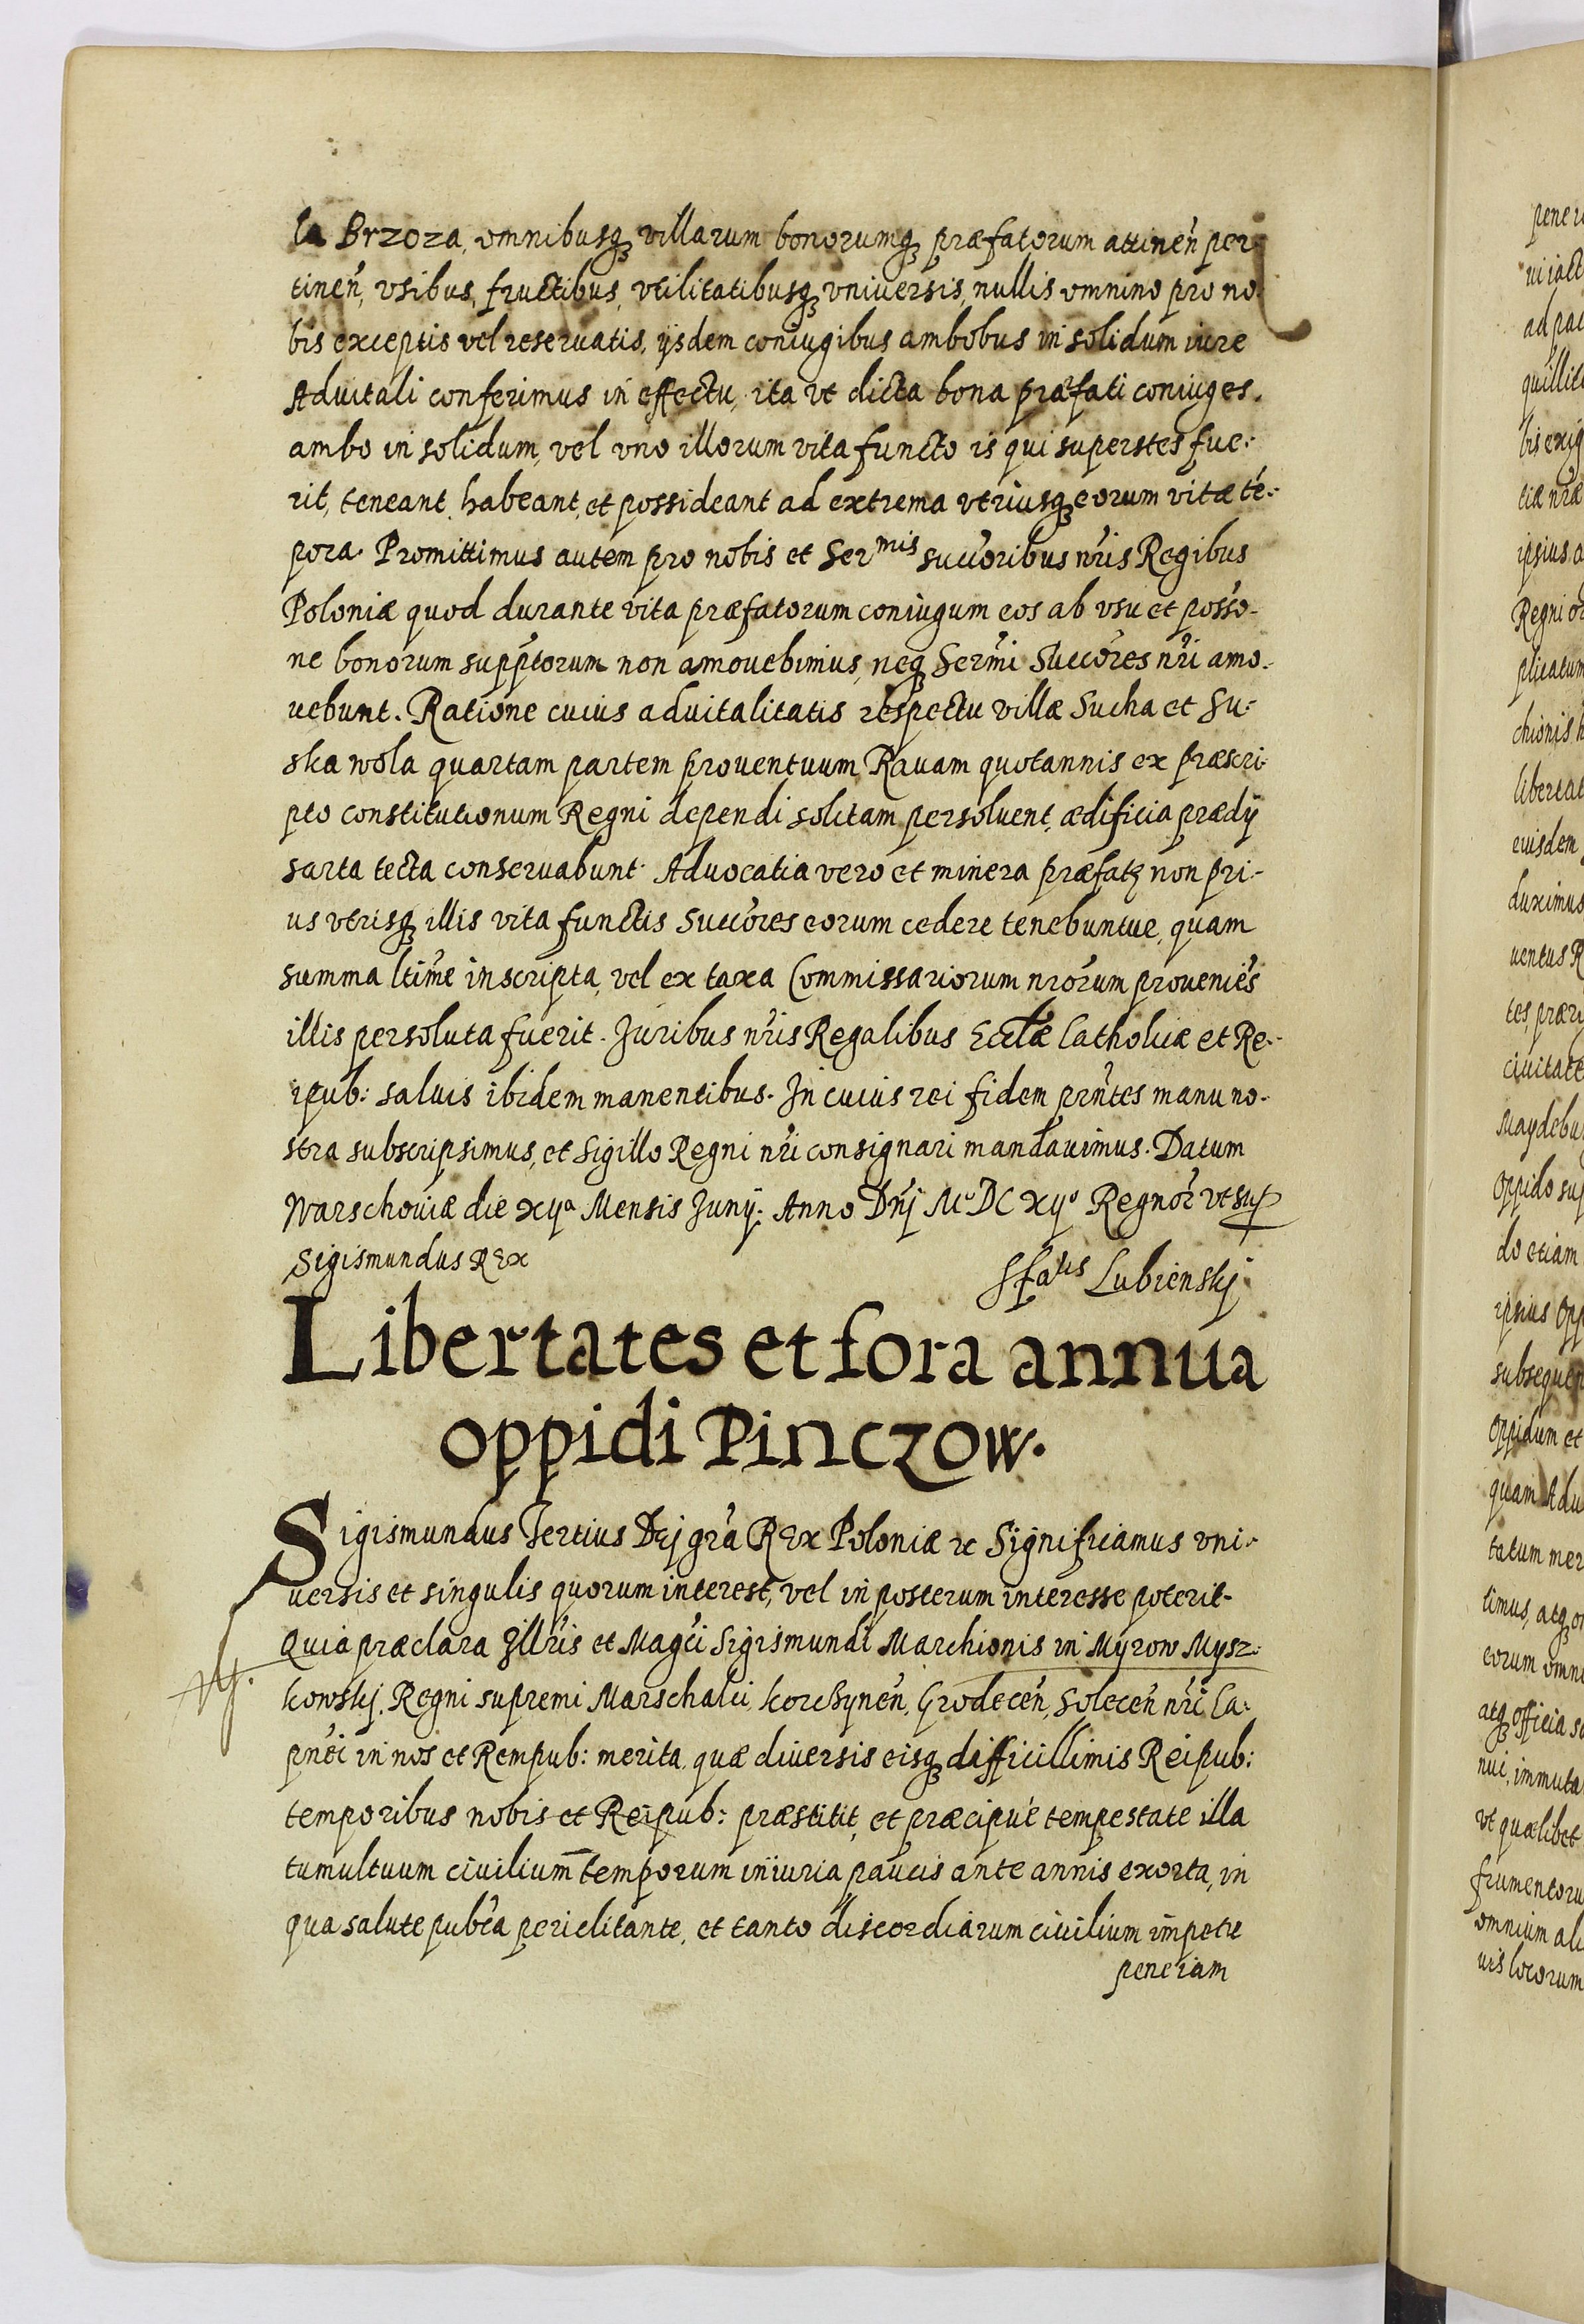 la Brzoza, omnibusq villarum bonorumq præfatorum attineñ per-
tineñ, vsibus, fructibus, vtilitatibusq vniuersis, nullis omnino pro no
bis exceptis vel reseruatis, ijsdem coniugibus ambobus in solidum iure
Aduitali conferimus in effectu, ita vt dicta bona præfati coniuges.
ambo in solidum, vel vno illorum vita functo is qui superstes fue-
rit, teneant, habeant, et possideant ad extrema vtriusq eorum vitæ té-
pora. Promittimus autem pro nobis et Ser^mis succoribus nr̃is Regibus
Poloniæ quod durante vita præfatorum coniugum eos ab vsu et posso-
ne bonorum supptorum non amouebimus, neq Serm̃i Succores nr̃i amo-
uebunt. Ratione cuius aduitalitatis respectu villæ Sucha et Su-
ska wola quartam partem prouentuum Rauam quotannis ex præscri-
pto constitutionum Regni dependi solitam persoluent, ædificia prædij
sarta tecta conseruabunt. Aduocatia vero et minera præfatȩ non pri-
us vtrisq illis vita functis Succores eorum cedere tenebuntur, quam
summa ltime inscripta, vel ex taxa Commissariorum nrorum prouenies
illis persoluta fuerit. Juribus nr̃is Regalibus Ecclæ Catholicæ et Re-
ipub: saluis ibidem manentibus. In cuius rei fidem prñtes manu no-
stra subscripsimus, et Sigillo Regni nr̃i consignari mandauimus. Datum
Warschouiæ die xijª Mensis Junij: Anno Dñi Mº DC xijº Regnor vt sup
Sigismundus REx
Sfaus Lubienskj
Libertates et fora annua
oppidi Pinczow.
Sigismundus Tertius Dej gr̃a REx Poloniæ &c Significamus vni-
uersis et singulis quorum interest, vel in posterum interesse poterit.
Quia præclara Jllr̃is et Mag̃ci Sigismundi Marchionis in Myrow Mysz-
kowskj, Regni supremi Marschalci, korczyneñ, Grodeceñ, Soleceñ nr̃i Ca-
pnei in nos et Rempub: merita, quæ diuersis eisq difficillimis Reipub:
temporibus nobis et Reipub: præstitit, et præcipué tempestate illa
tumultuum ciuilium temporum iniuria paucis ante annis exorta, in
qua salute pubca periclitante, et tanto discordiarum ciuilium impetu
pene iam
pene
ui iact
ad pac
quillit
bis exig
tiæ nræ
ipsius a
Regni or
plicatum
chionis
libertat
eiusdem
duximus
uentus R
tes, præri
ciuitate
Maydebu
Oppido sup
do etiam
ipsius Opp
subsequen
Oppidum et
quam Adu
tatum mer
timus, atq or
eorum omni
atq officia s
nui, immuta
vt quælibet
frumentoru
omnium ali
uis locorum